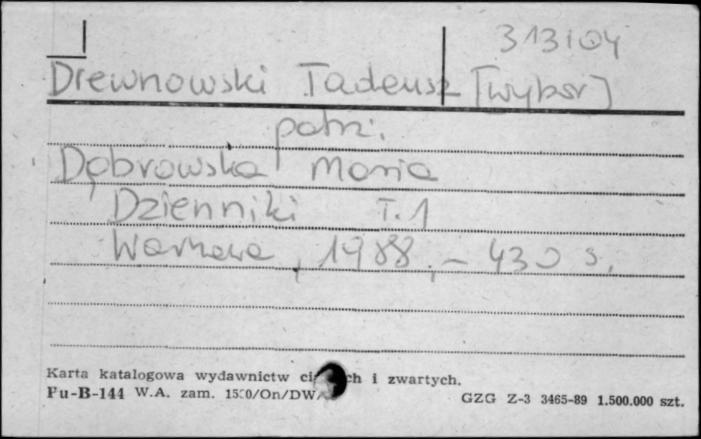 313104
Drewnowski Tadeusz [wybór]
patrz:
Dąbrowska Maria
Dzienniki T.1
Warszawa, 1988, – 430 s.
Karta katalogowa wydawnictw ci ch i zwartych.
Pu-B-144 W.A. zam. /On/DW
GZG Z-3 3465-89 1.500.000 szt.